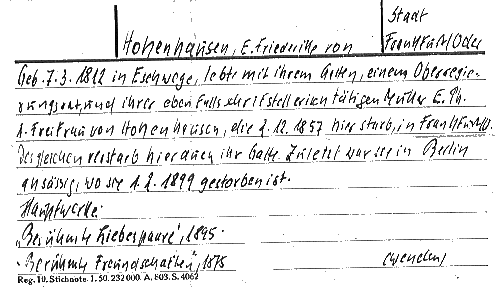 Stadt
Hohenhausen, E. Friederike von
Frankfurt/Oder
Geb. 7.3.1812 in Eschwege, lebte mit ihrem Gatten, einem Oberregie-
rungsrat, und ihrer ebenfalls schriftstellerisch tätigen Mutter E. Ph.
A. Freifrau von Hohenhausen, die 2.12.1857 hier starb, in Frankfurt/O.
Desgleichen verstarb hier auch ihr Gatte. Zuletzt war sie in Berlin
ansässig, wo sie 1.2.1899 gestorben ist.
Hauptwerke:
„Berühmte Liebespaare", 1895
„Berühmte Freundschaften", 1875
Reg. 10. Stichnote. 1. 50. 232000. A. 803. S. 4062